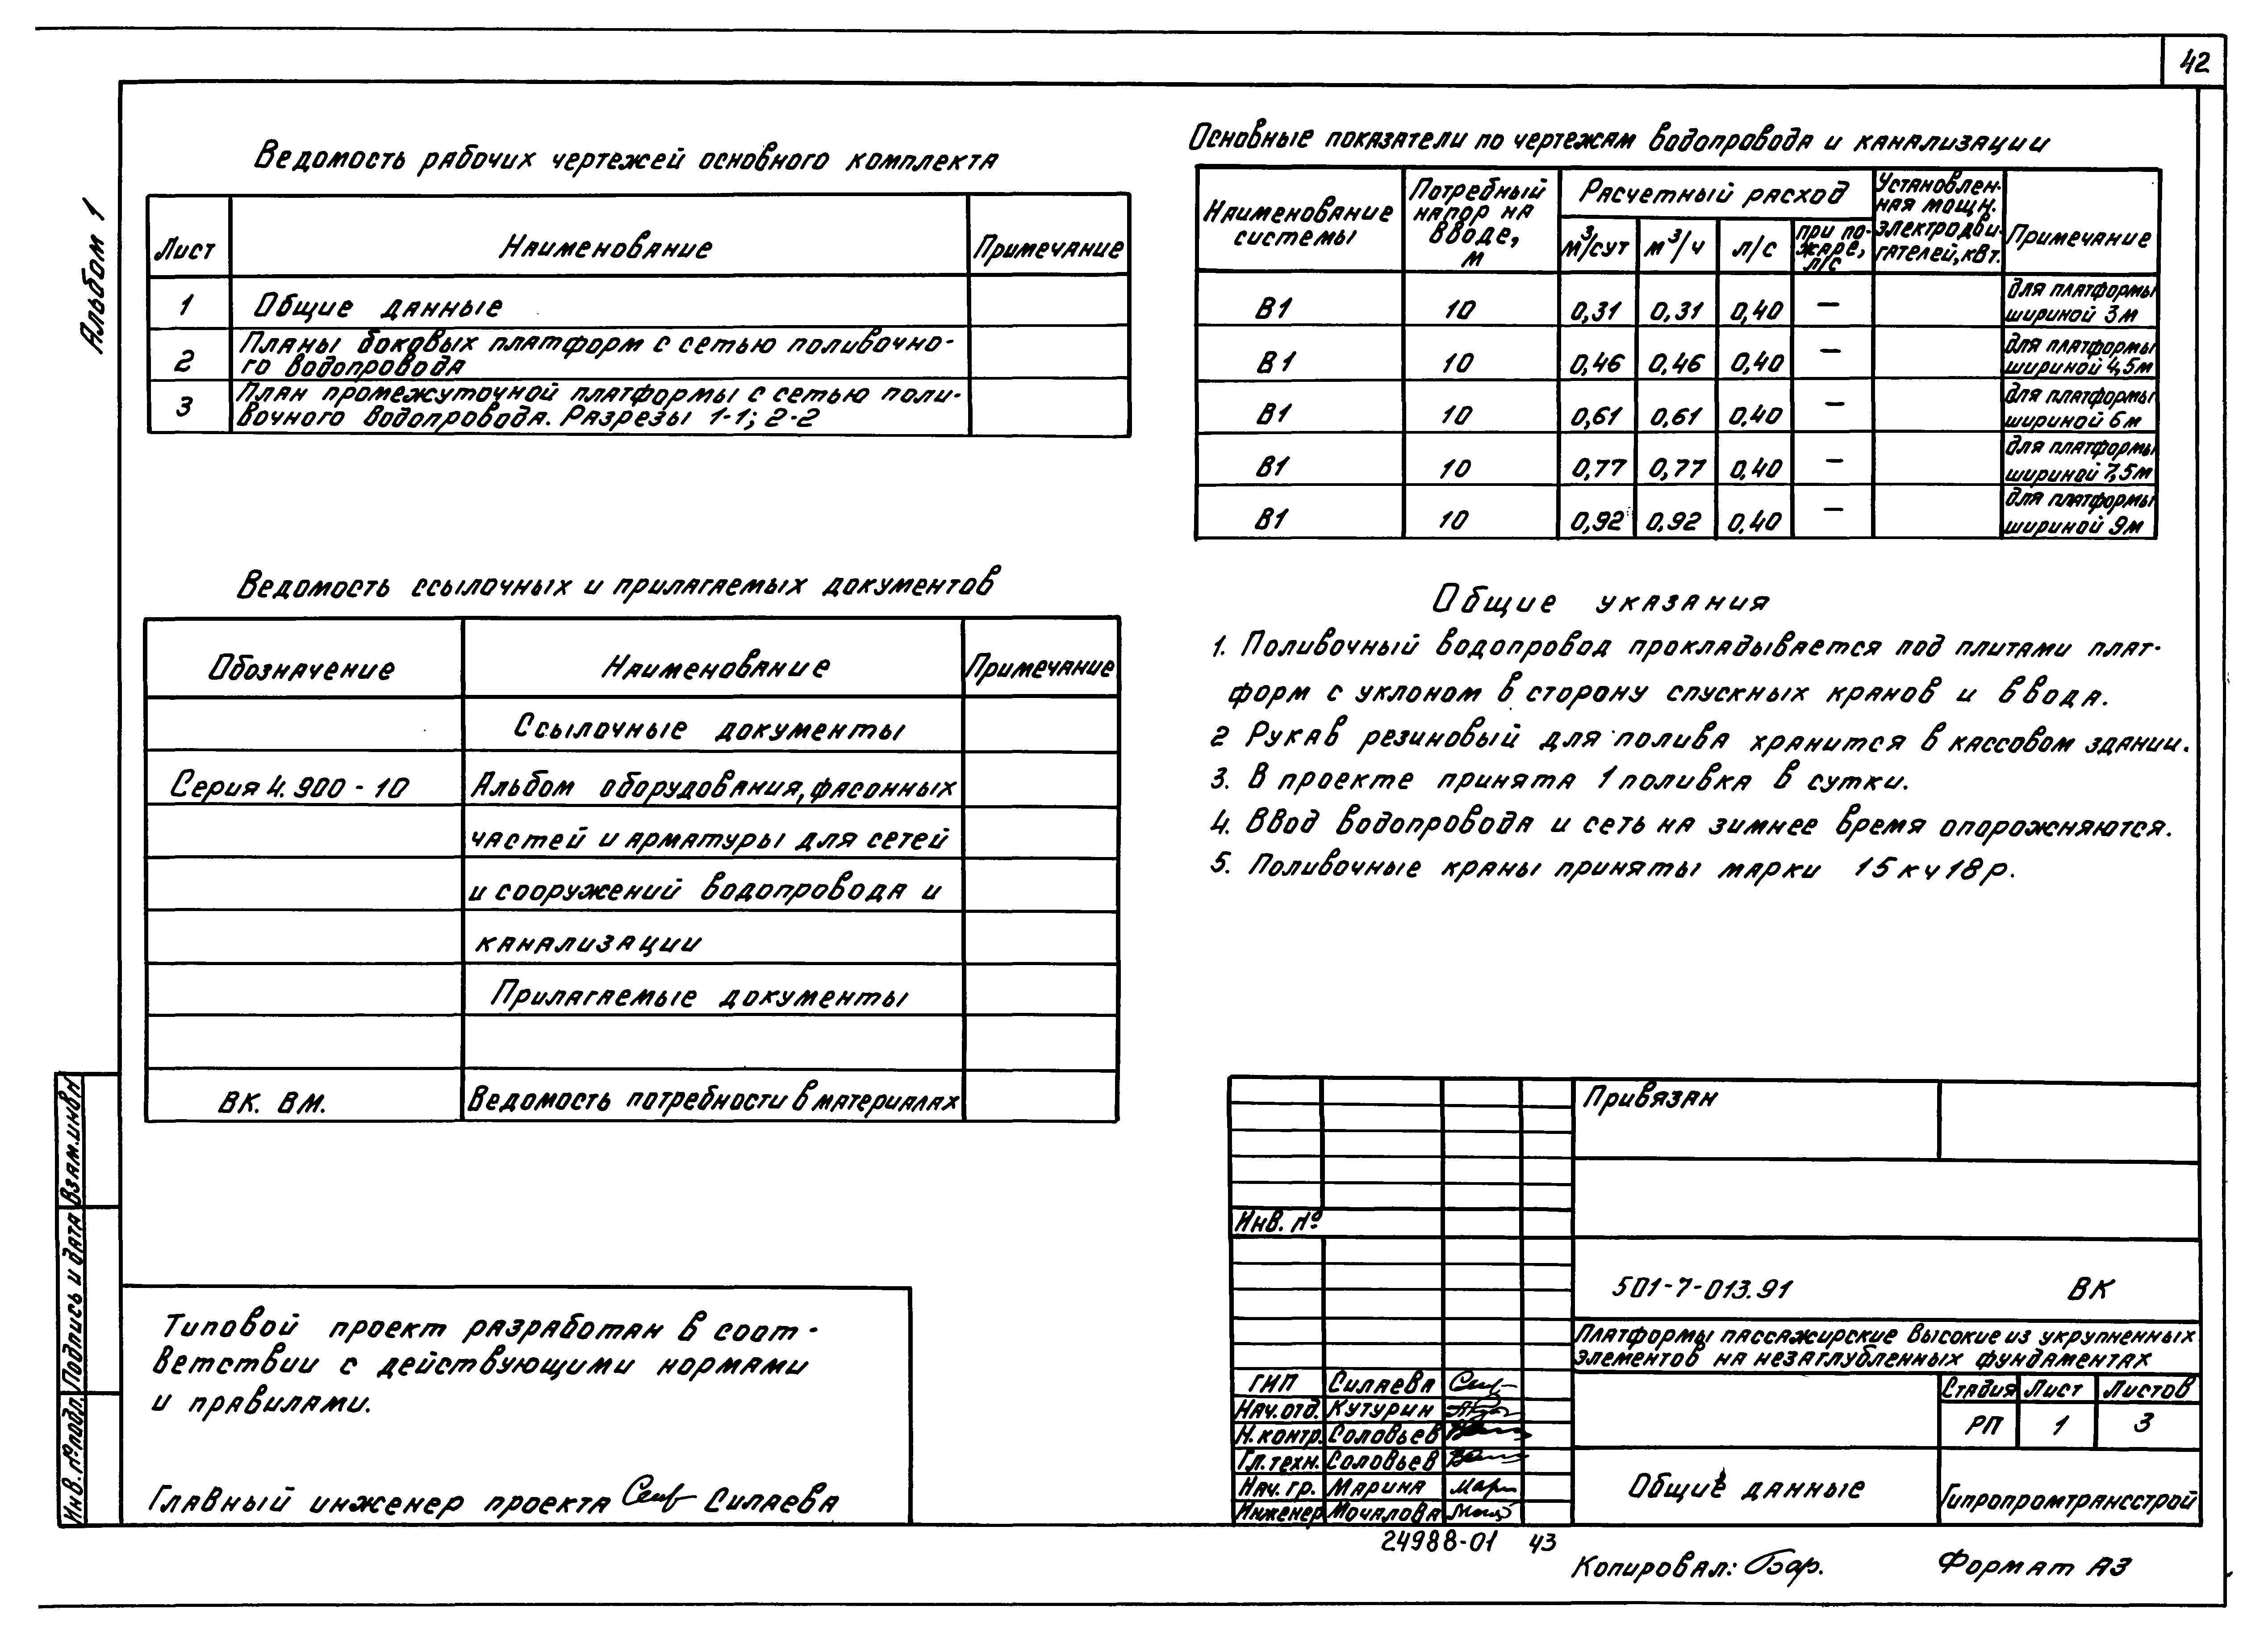 42
Альбом 1
Ведомость рабочих чертежей основного комплекта
Лист Наименование Примечание
1 Общие данные
2 Планы боковых платформ с сетью поливочно-
го водопровода
3 План промежуточной платформы с сетью поли-
вочного водопровода. Разрезы 1-1; 2-2
Ведомость ссылочных и прилагаемых документов
Обозначение Наименование Примечание
Ссылочные документы
Серия 4.900-10 Альбом оборудования, фасонных
частей и арматуры для сетей
и сооружений водопровода и
канализации
Прилагаемые документы
ВК. ВМ. Ведомость потребности в материалах
Типовой проект разработан в соот-
ветствии с действующими нормами
и правилами.
Главный инженер проекта Силаева
Основные показатели по чертежам водопровода и канализации
Наименование
системы
Потребный
напор на
вводе,
м
Расчетный расход
м³/сут м³/ч л/с
при по-
жаре,
л/с
Установлен-
ная мощн.
электродви-
гателей, квт.
Примечание
В1 10 0,31 0,31 0,40 — для платформы
шириной 3м
В1 10 0,46 0,46 0,40 — для платформы
шириной 4,5м
В1 10 0,61 0,61 0.40 — для платформы
шириной 6м
В1 10 0,77 0,77 0,40 — для платформы
шириной 7,5м
В1 10 0,92 0,92 0,40 — для платформы
шириной 9м
Общие указания
1. Поливочный водопровод прокладывается под плитами плат-
форм с уклоном в сторону спускных кранов и ввода.
2 Рукав резиновый для полива хранится в кассовом здании.
3. В проекте принята 1 поливка в сутки.
4. Ввод водопровода и сеть на зимнее время опорожняются.
5. Поливочные краны приняты марки 15кч18р.
Привязан
Инв. №
501-7-013.91 ВК
Платформы пассажирские высокие из укрупненных
элементов на незаглубленных фундаментах
ГИП Силаева
Нач.отд. Кутурин
Н.контр. Соловьев
Гл.техн. Соловьев
Нач.гр. Марина
Инженер Мочалова
Стадия Лист Листов
РП 1 3
Общие данные
Гипропромтрансстрой
24988-01 43
Копировал:
Формат А3
Взам.инв.№
Подпись и дата
Инв. № подл.